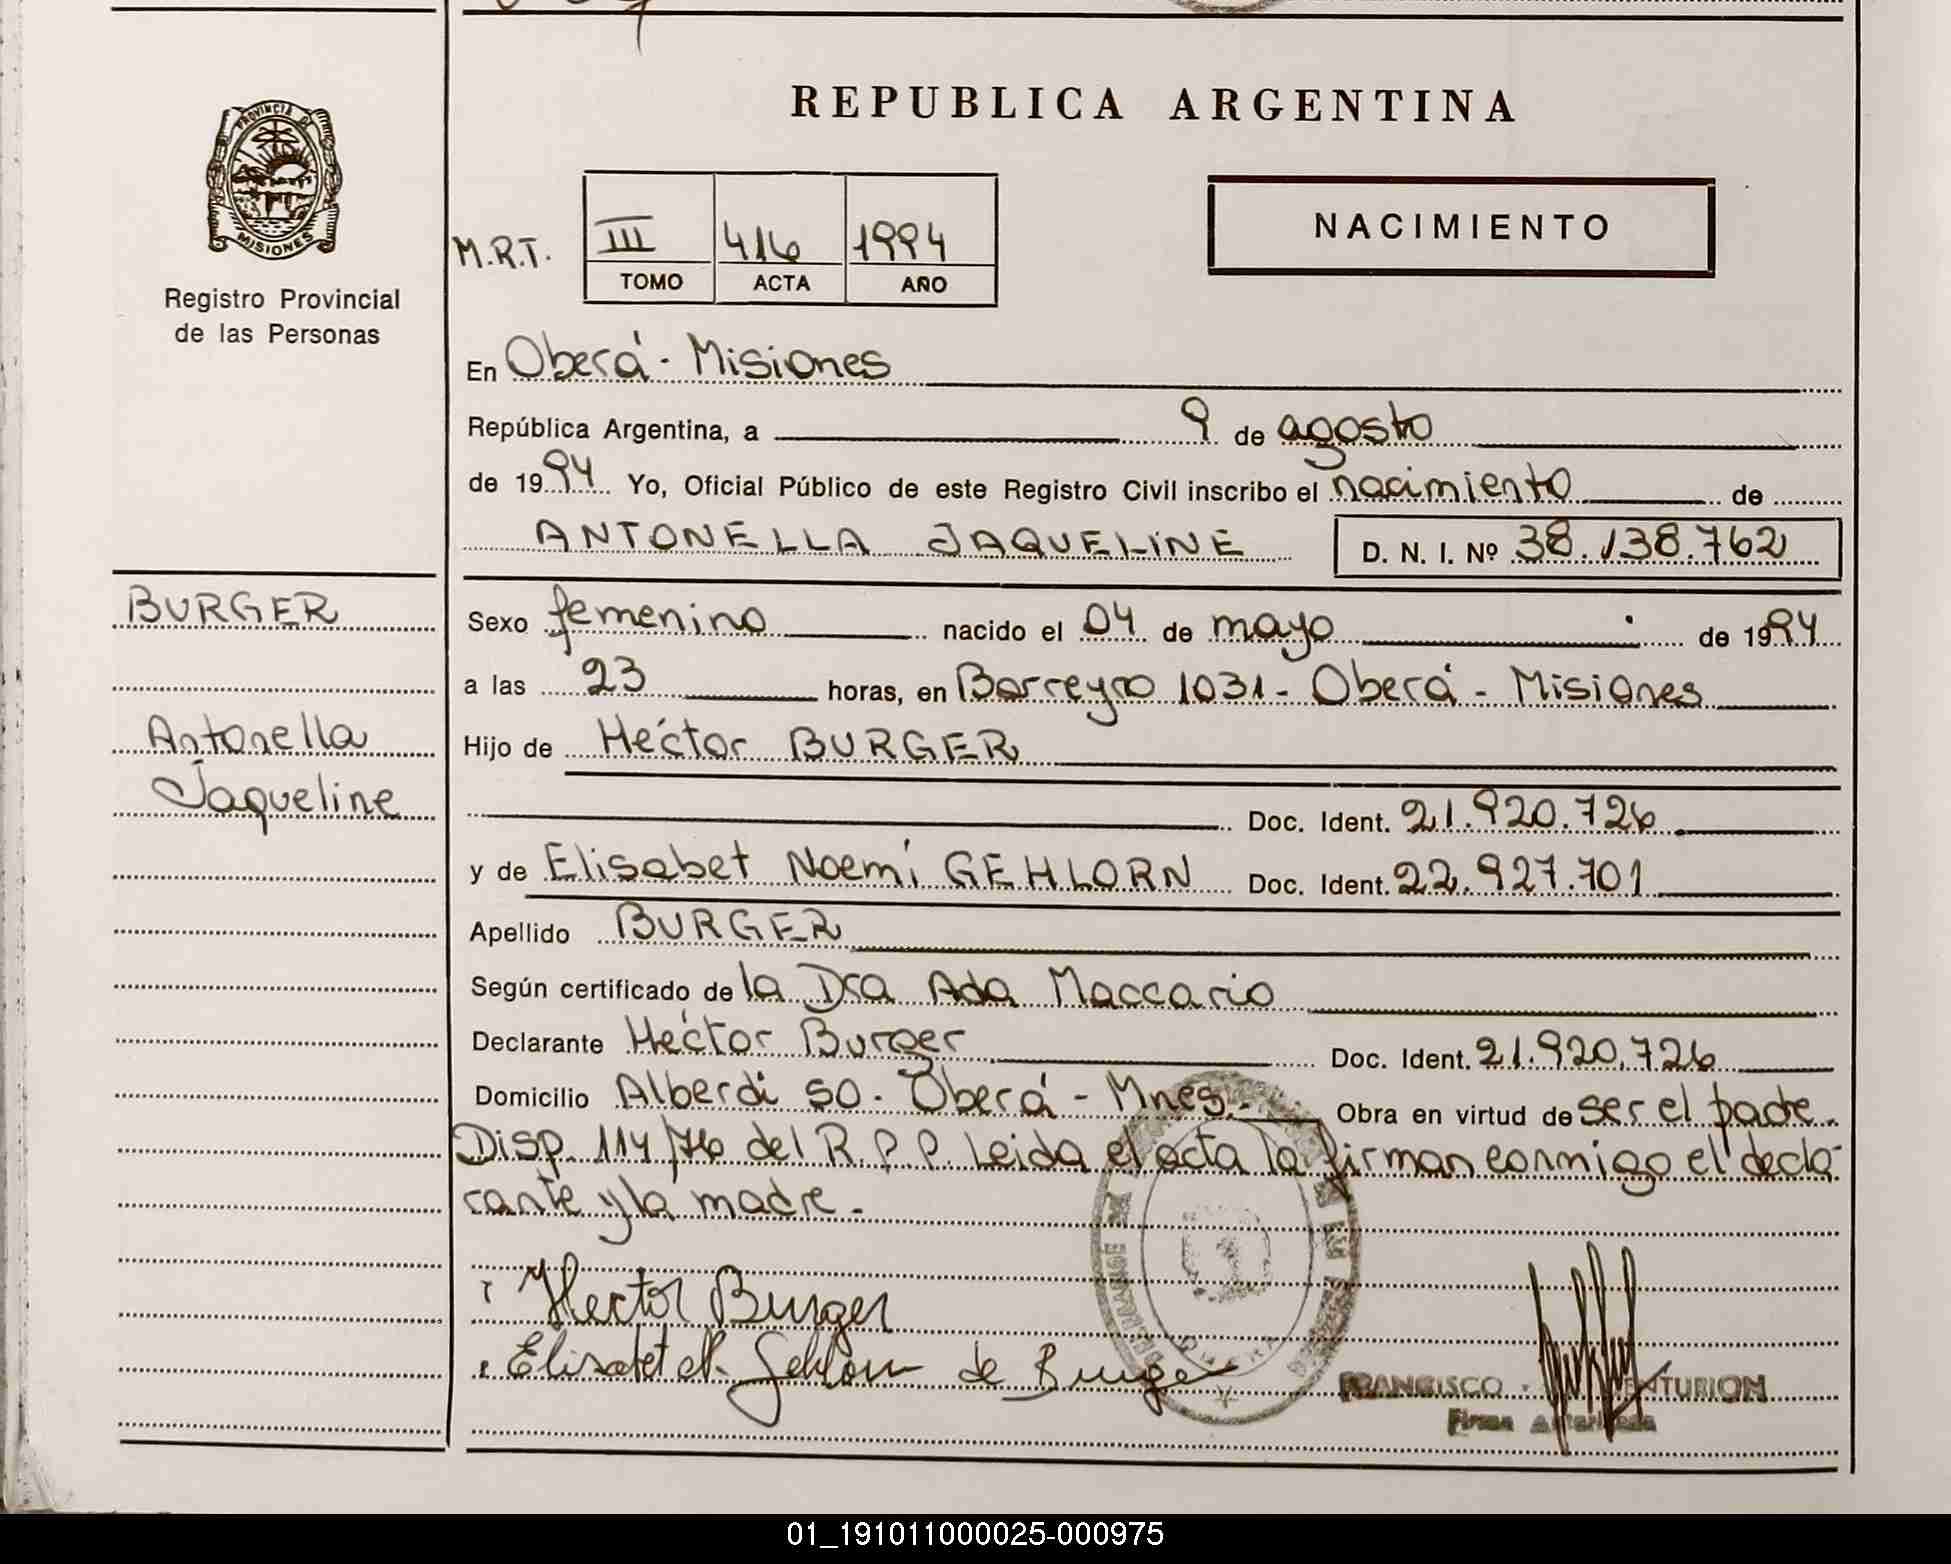 REPUBLICA ARGENTINA
PROVINCIA DE
MISIONES
Registro Provincial
de las Personas
M.R.T.
III 416 1994
TOMO ACTA AÑO
NACIMIENTO
En Oberá - Misiones
República Argentina, a 9 de agosto
de 1994 Yo, Oficial Público de este Registro Civil inscribo el nacimiento de
ANTONELLA JAQUELINE D. N. I. Nº 38.138.762
BURGER
Antonella
Jaqueline
Sexo femenino nacido el 04 de mayo de 1994
a las 23 horas, en Barreyro 1031 - Oberá - Misiones
Hijo de Héctor BURGER
Doc. Ident. 21.920.726
y de Elisabet Noemí GEHLORN Doc. Ident. 22.927.701
Apellido BURGER
Según certificado de la Dra Ada Maccario
Declarante Héctor Burger Doc. Ident. 21.920.726
Domicilio Alberdi 50 - Oberá - Mnes. - Obra en virtud de ser el padre.
Disp. 114/76 del R.P.P. Leida el acta la firman conmigo el decla-
rante y la madre.-
Hector Burger
Elisabet N. Gehlorn de Burger
FRANCISCO
Firma Autorizada
01_191011000025-000975